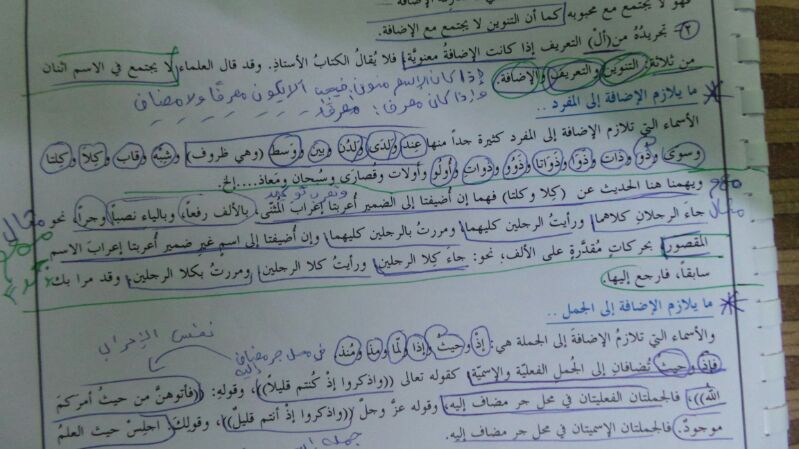 فهو لا يجتمع مع محبوبه كما أن التنوين لا يجتمع مع الإضافة.
٢- تجريدُهُ من (أل) التعريف إذا كانت الإضافةُ معنويَّة فلا يُقالُ الكتابُ الأستاذِ. وقد قال العلماء: لا يجتمع في الاسم اثنان
من ثلاثة: التنوين والتعريف والإضافة.
إذا كان الاسم منون فيجب ألا يكون معرفًا ولا مضاف
وإذا كان معرف:
ما يلازم الإضافة إلى المفرد ..
الأسماء التي تلازم الإضافة إلى المفرد كثيرة جداً منها عِند ولَدَى ولَدُن وبين ووَسط (وهي ظروف) وشبْه وقاب وكِلَا وكلتا
وسوى وذُو وذات وذَوَا وذَوَاتا وذَوُو وذَوات وأُولُو وأولات وقُصارَى وسُبحان ومَعاذ....إلخ.
ويهمنا هنا الحديث عن (كِلا وكلتا) فهما إن أُضيفتا إلى الضمير أُعربتا إعرابَ المُثنَّى، بالألف رفعاً، وبالياءِ نصباً وجراً نحو
مثال
جاءَ الرجلانِ كلاهما ورأيتُ الرجلين كليهما ومررتُ بالرجلين كليهما وإن أُضيفتا إلى اسمٍ غيرِ ضميرٍ أُعربتا إعرابَ الاسم
المقصور بحركاتٍ مُقدَّرةٍ على الألف، نحو: جاءَ كِلا الرجلين ورأيتُ كلا الرجلين ومررتُ بكلا الرجلين، وقد مرا بك
سابقاً، فارجع إليها.
ما يلازم الإضافة إلى الجمل ..
نفس الإعراب
والأسماء التي تلازمُ الإضافةَ إلى الجملة هي: إذْ وحيثُ وإذا ولمّا ومُذ ومُنذ. في محل جر مضاف إليه
فإذْ وحيثُ تُضافانِ إلى الجُملِ الفعليّة والإسميّة، كقوله تعالى ((واذكروا إذْ كُنتم قليلاً))، وقولهِ: ((فأتوهنَّ من حيثُ أمركمَ
اللهُ))، فالجملتان الفعليتان في محل جر مضاف إليه، وقوله عزَّ وجلَّ ((واذكروا إذْ أنتم قليلٌ))، وقولِكَ: اجلِسْ حيث العلمُ
موجودٌ. فالجملتان الإسميتان في محل جر مضاف إليه.